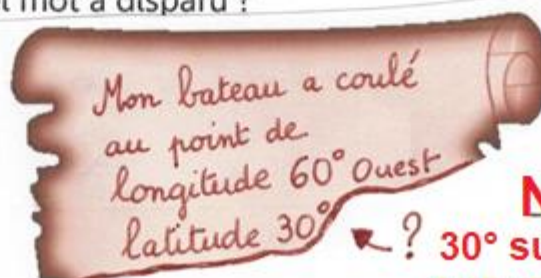 mot a disparu ?
Mon bateau a coulé
au point de
longitude 60° Ouest
latitude 30°
?
30° su